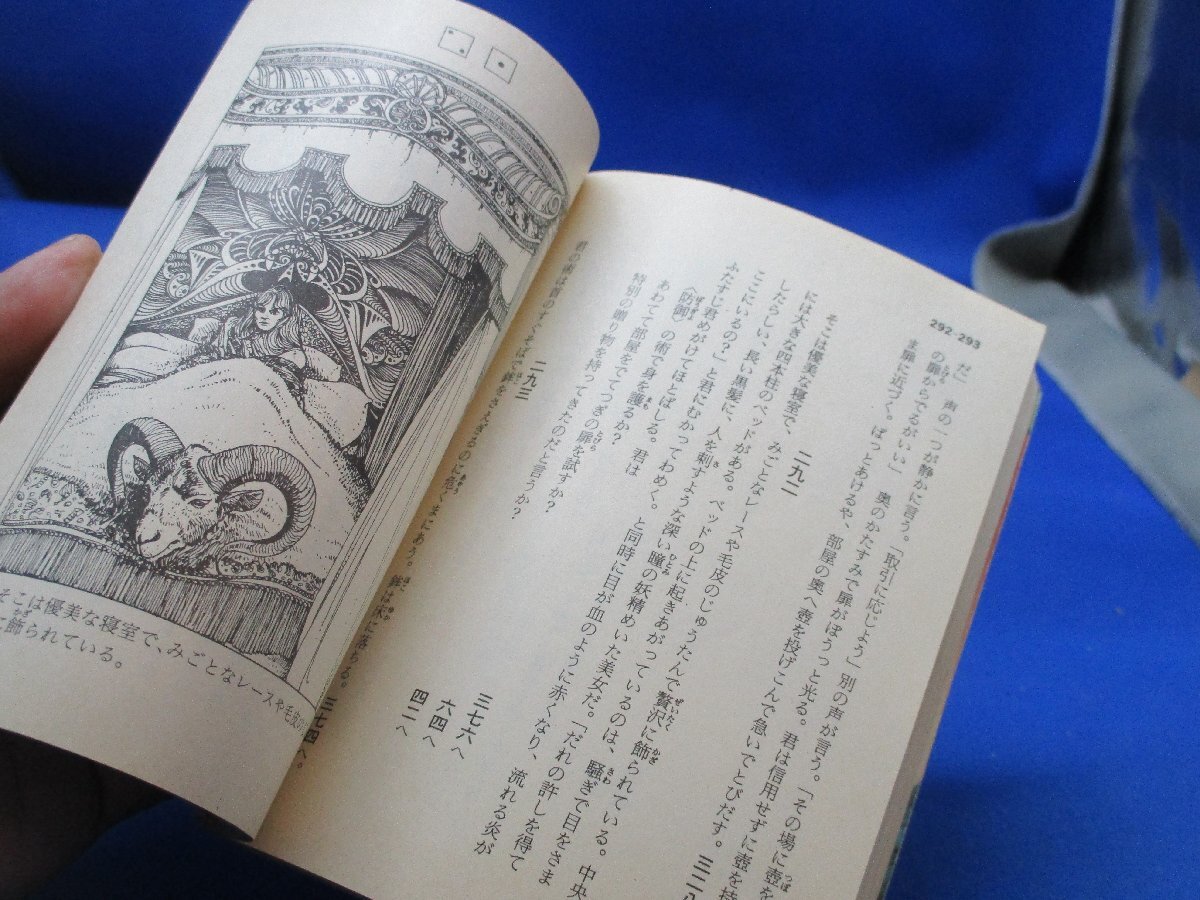 292-293
だ」　声の一つが静かに言う。「取引に応じよう」別の声が言う。「その場に壺を
の扉からでるがいい」　奥のかたすみで扉がぼうっと光る。君は信用せずに壺を持
ま扉に近づく。ぱっとあけるや、部屋の奥へ壺を投げこんで急いでとびだす。三二八
二九二
そこは優美な寝室で、みごとなレースや毛皮のじゅうたんで贅沢に飾られている。中央
には大きな四本柱のベッドがある。ベッドの上に起きあがっているのは、騒ぎで目をさま
したらしい、長い黒髪に、人を刺すような深い瞳の妖精めいた美女だ。「だれの許しを得て
ここにいるの？」と君にむかってわめく。と同時に目が血のように赤くなり、流れる炎が
ふたすじ君めがけてほとばしる。君は
〈防御〉の術で身を護るか？　三七六へ
あわてて部屋をでてつぎの扉を試すか？　六四へ
特別の贈り物を持ってきたのだと言うか？　四二へ
二九三
君の術は顔のすぐそばで鉾をさえぎるのに危くまにあう。鉾は床に落ちる。三七四へ。
そこは優美な寝室で、みごとなレースや毛皮の
に飾られている。